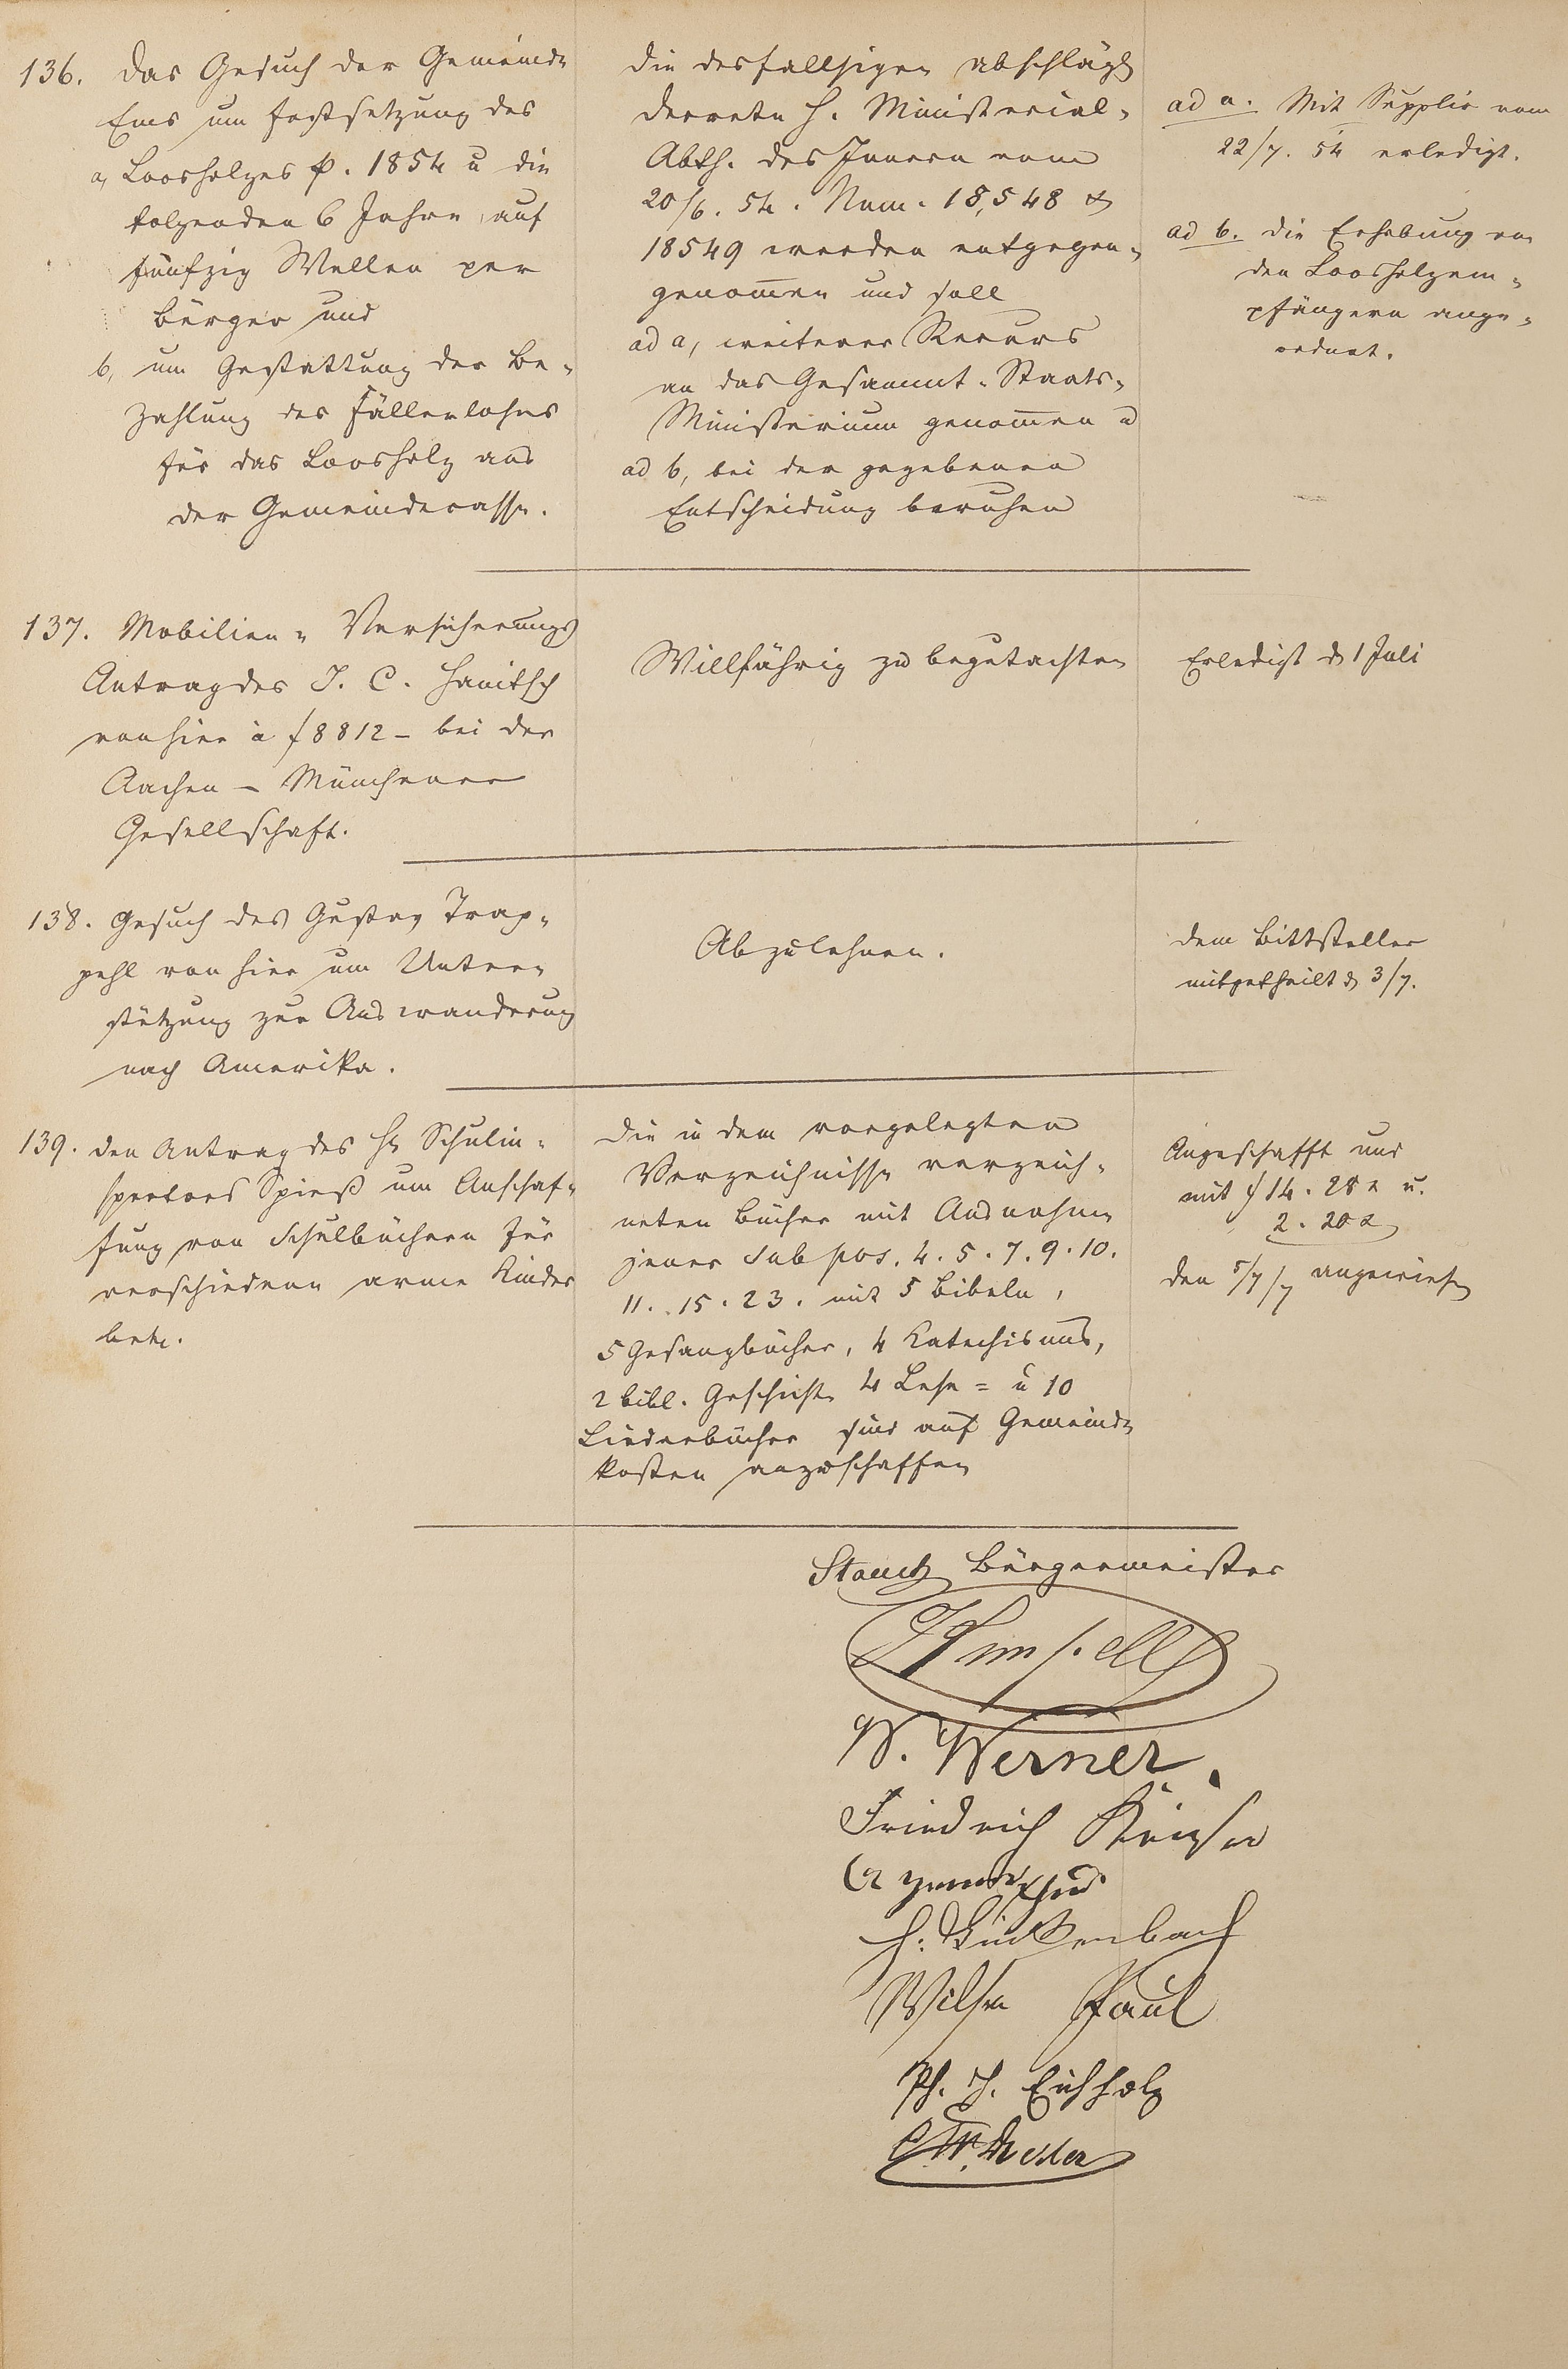 136. Das Gesuch der Gemeinde
Ems um Festsetzung des
a, Loosholzes p. 1854 u die
folgenden 6 Jahre auf
fünfzig Wellen per
Bürger und
b, um Gestattung der Be-
zahlung des Fällerlohns
für das Loosholz aus
der Gemeindecasse.
Die desfallsigen abschlägl
Decrete H. Ministerial-
Abth. des Innern vom
20/6. 54. Num. 18,548 &
18549 werden entgegen-
genommen und soll
ad a, weiterer Recurs
an das Gesammt-Staats-
Ministerium genommen u
ad b, bei der gegebenen
Entscheidung beruhen
ad a. Mit Supplik vom
22/7. 54 erledigt.
ad b. die Erhebung von
den Loosholzem-
pfängern ange-
ordnet.
137. Mobilien-Versicherungs
Antrag des J. C. Hanitsch
von hier à f 8812 – bei der
Aachen – Münchener
Gesellschaft.
Willfährig zu begutachten
Erledigt d 1 Juli
138. Gesuch des Gustav Trap-
pehl von hier um Unter-
stützung zur Auswanderung
nach Amerika.
Abzulehnen.
Dem Bittsteller
mitgetheilt d 3/7.
139. Den Antrag des H Schulin-
spectors Spieß um Anschaf-
fung von Schulbüchern für
verschiedene arme Kinder
betr.
Die in dem vorgelegten
Verzeichnisse verzeich-
neten Bücher mit Ausnahme
jener sub pos. 4. 5. 7. 9. 10.
11. 15. 23. mit 5 Bibeln,
5 Gesangbücher, 4 Katechismus,
2 bibl. Geschichte 4 Lese = u 10
Liederbücher sind auf Gemeinde
Kosten anzuschaffen
Angeschafft und
mit f 14. 28 x u.
2. 20 x
den 5/7 angewiesen
Stauch Bürgermeister
W. Werner.
Friedrich
H. Bückenbach
Wilhm Paul
Ph. J. Eichholz